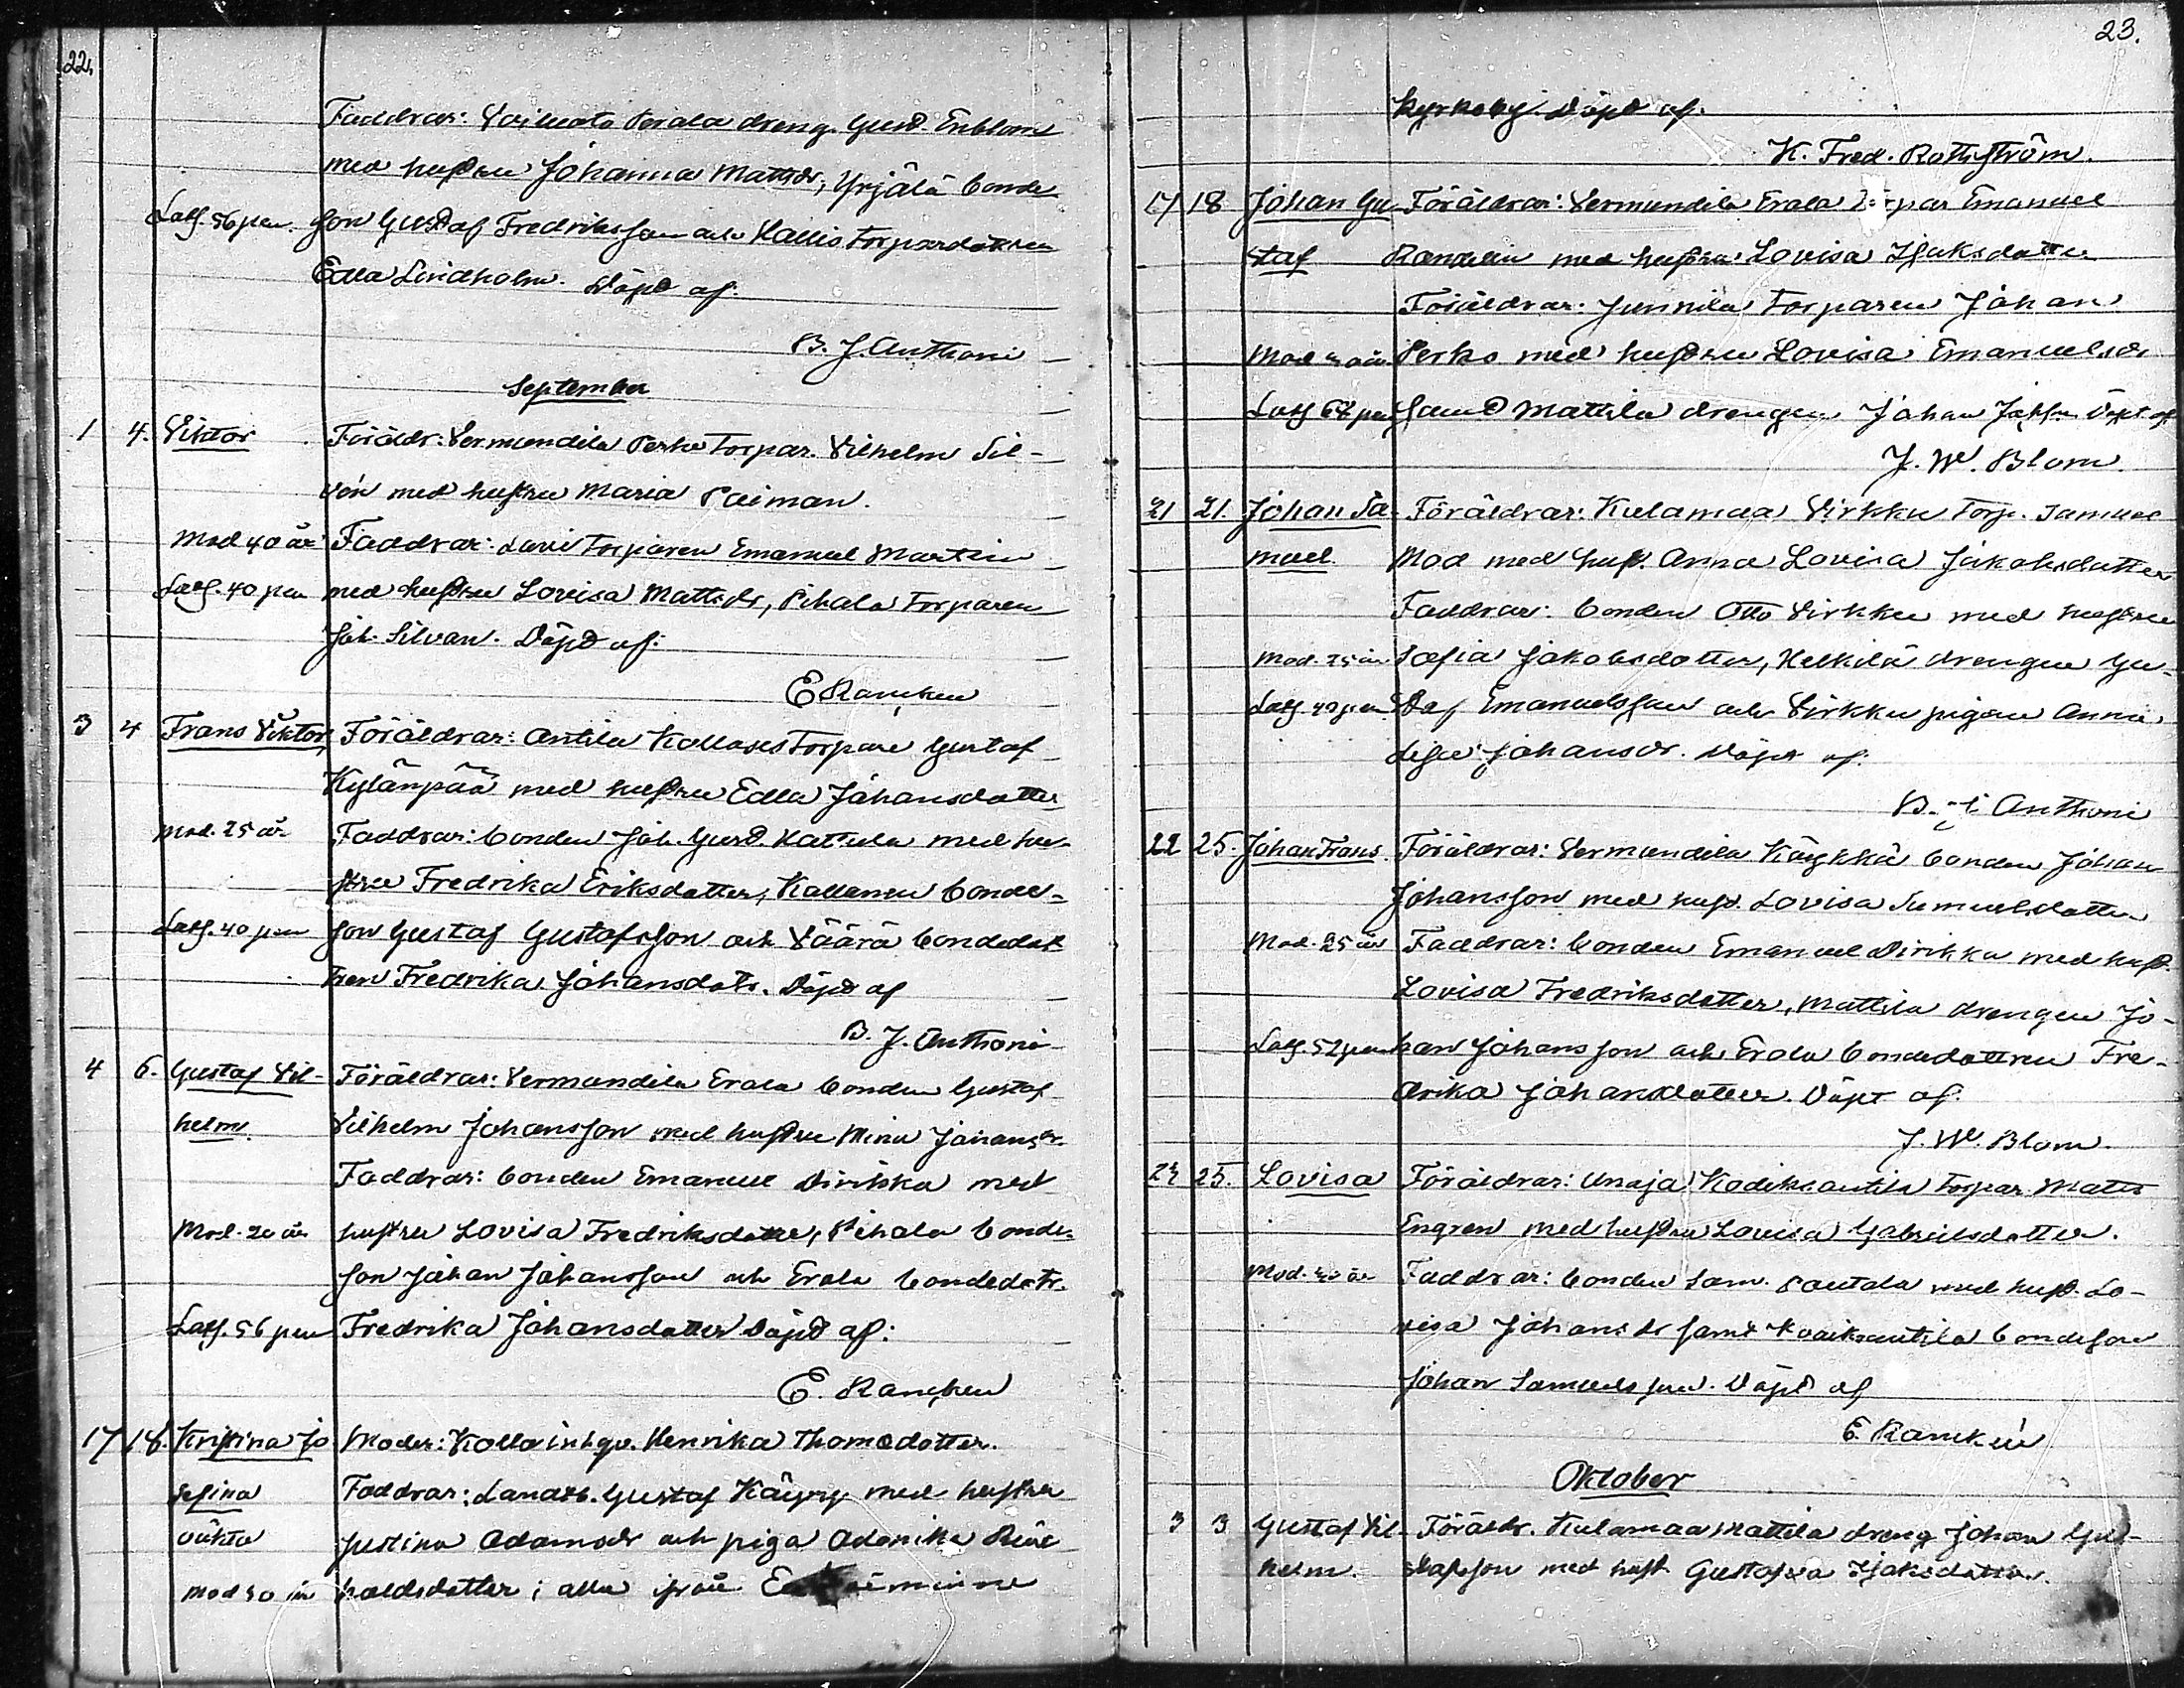 22.
Faddrar: Perala dreng. Gust. Enblom
med hustru Johanna Mattsdr, Yrjälä bonde
Lösg. 56 pen. son Gustaf Fredriksson och Kallis Torparedottren
Edla Lindholm. Döpt af:
B. J. Anthoni
September
1 4. Viktor Föräldr: Vermundila Perko Torpar. Vilhelm Sil-
vén med hustru Maria Paiman.
Mod 40 år Faddrar: Lavi Torparen Emanuel Martin
Lösg. 40 pen med hustru Lovisa Mattsdr, Pihala Torparen
Joh. Silvan. Döpt af:
E Rancken
3 4 Frans Viktor, Föräldrar: Antila Kollases Torpare Gustaf
Kylänpää med hustru Edla Johansdotter
Mod. 25 år Faddrar: bonden Joh. Gust. Kattula med hu-
stru Fredrika Eriksdotter, bonde-
Lösg. 40 pen son Gustaf Gustafsson och Väärä bondedot
tren Fredrika Johansdotr. Döpt af
B. J. Anthoni
4 6. Gustaf Vil- Föräldrar: Vermundila Erala bonden Gustaf
helm. Vilhelm Johansson med hustru Mina Johansdr.
Faddrar: bonden Emanuel Dirikka med
Mod. 20 år hustru Lovisa Fredriksdotter, Pihala bonde-
son Johan Johansson och Erala bondedotr.
Lösg. 56 pen Fredrika Johansdotter Döpt af:
E. Rancken
17 18. Kristina Jo Moder: Kolla inhqv. Henrika Thomedotter.
sefina Faddrar: Landtb. Gustaf Käyry med hustru
oäkta Justina Adamsdr och piga Adonika
Mod 30 år holdsdotter; alla ifrån
23.
Kyrkoby. Döpt af.
K. Fred. Rottström.
17 18 Johan Gu Föräldrar: Vermundila Erala Torpar Emanuel
staf med hustru Lovisa Isaksdotter
Föräldrar: Junnila Torparen Johan
Mod år Perko med hustru Lovisa Emanuelsdr
Lösg 68 pen samt Mattila drengen Johan Döpt af
J. W. Blom.
21 21. Johan Sa- Föräldrar: Kulamaa Virkku Torp. Samuel
muel. Mod med hust. Anna Lovisa Jakobsdotter
Faddrar: bonden Otto Virkku med hustru
Mod. 25 år Sofia Jakobsdotter, Heikilä drengen Gu-
Lösg. 40 pen staf Emanuelsson och Virkku pigan Anna
Johansdr. Döpt af:
B. J. Anthoni
22 25. Johan Frans. Föräldrar: Vermundila Käykkä bonden Johan
Johansson med hust. Lovisa Samuelsdotter
Mod. 25 år Faddrar: bonden Emanuel Dirikka med hust.
Lovisa Fredriksdotter, Mattila drengen Jo-
Lösg. 52 pen han Johansson och Erala bondedottren Fre-
drika Johansdotter. Döpt af.
J. W. Blom.
24 25. Lovisa Föräldrar: Unaja Kodiksantila Torpar. Matts
Engren med hustru Lovisa Gabrielsdotter.
Mod. år Faddrar: bonden Sam. Santala med hust. Lo-
visa Johansdr samt Kodiksantila bondeson
Johan Samuelsson. Döpt af
E. Rancken
Oktober
3 3 Gustaf Vil- Föräldr. Kulamaa Mattila dreng Johan Gu-
helm. stafsson med hust Gustafva Isaksdotter.